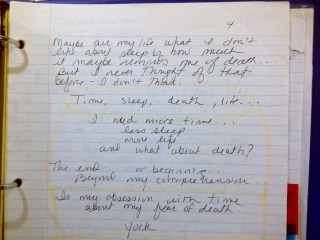 4
Maybe all my life what I don't
like about sleep is how much
it maybe reminds me of death..
But I never thought of that
before - I don't think.
Time, sleep, death, life...
I need more time...
less sleep
more life
and what about death?
The end ... or beginning...
Beyond my comprehension...
Is my obsession with time
about my fear of death.
Yuck